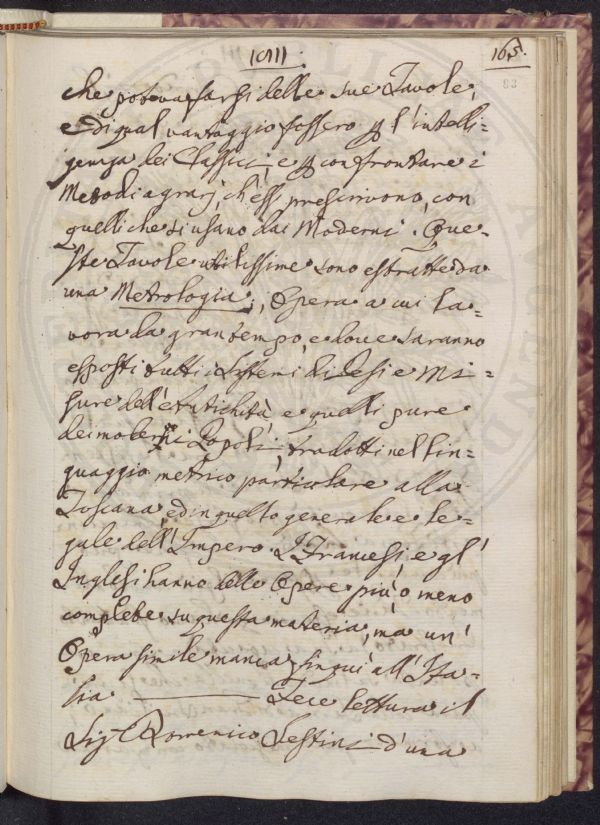 165.
83
che poteva farsi delle sue Tavole,
e di qual vantaggio fossero p l'intelli=
genza dei Classici, e p confrontare i
Metodi agrarj, ch'essi prescrivono, con
quelli che si usano dai Moderni. Que=
ste Tavole utilissime sono estratte da
una Metrologia, Opera a cui la=
vora da gran tempo, e dove saranno
esposti tutti i Sistemi di Pesi e Mi=
sure dell'Antichità e quelli pure
dei moderni Popoli, tradotti nel lin=
guaggio metrico particolare alla
Toscana ed in quello generale e le=
gale dell'Impero. I Francesi, e gl'
Inglesi hanno delle Opere più o meno
complete su questa materia, ma un'
Opera simile manca fin qui all'Ita=
lia Fece lettura il
Sig. Domenico Sestini d'una